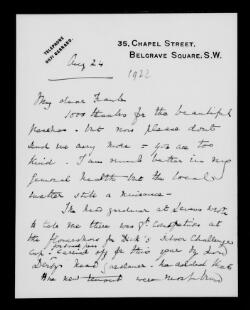 TELEPHONE
35, CHAPEL STREET,
BELGRAVE SQUARE, S.W.
Aug 24
1922
My dear
1000 thanks for the beautiful
but now please dont
send me any more – you are too
kind. I am much better in my
general health – but the local
matter still a nuisance –
The new gardener at wrote
to tell me there was gt Competition at
the Flowershow for Dick's Silver Challenge
Cup – carried off for this year by Lord
Derby's Head gardener. he added that
the new tenant were most kind